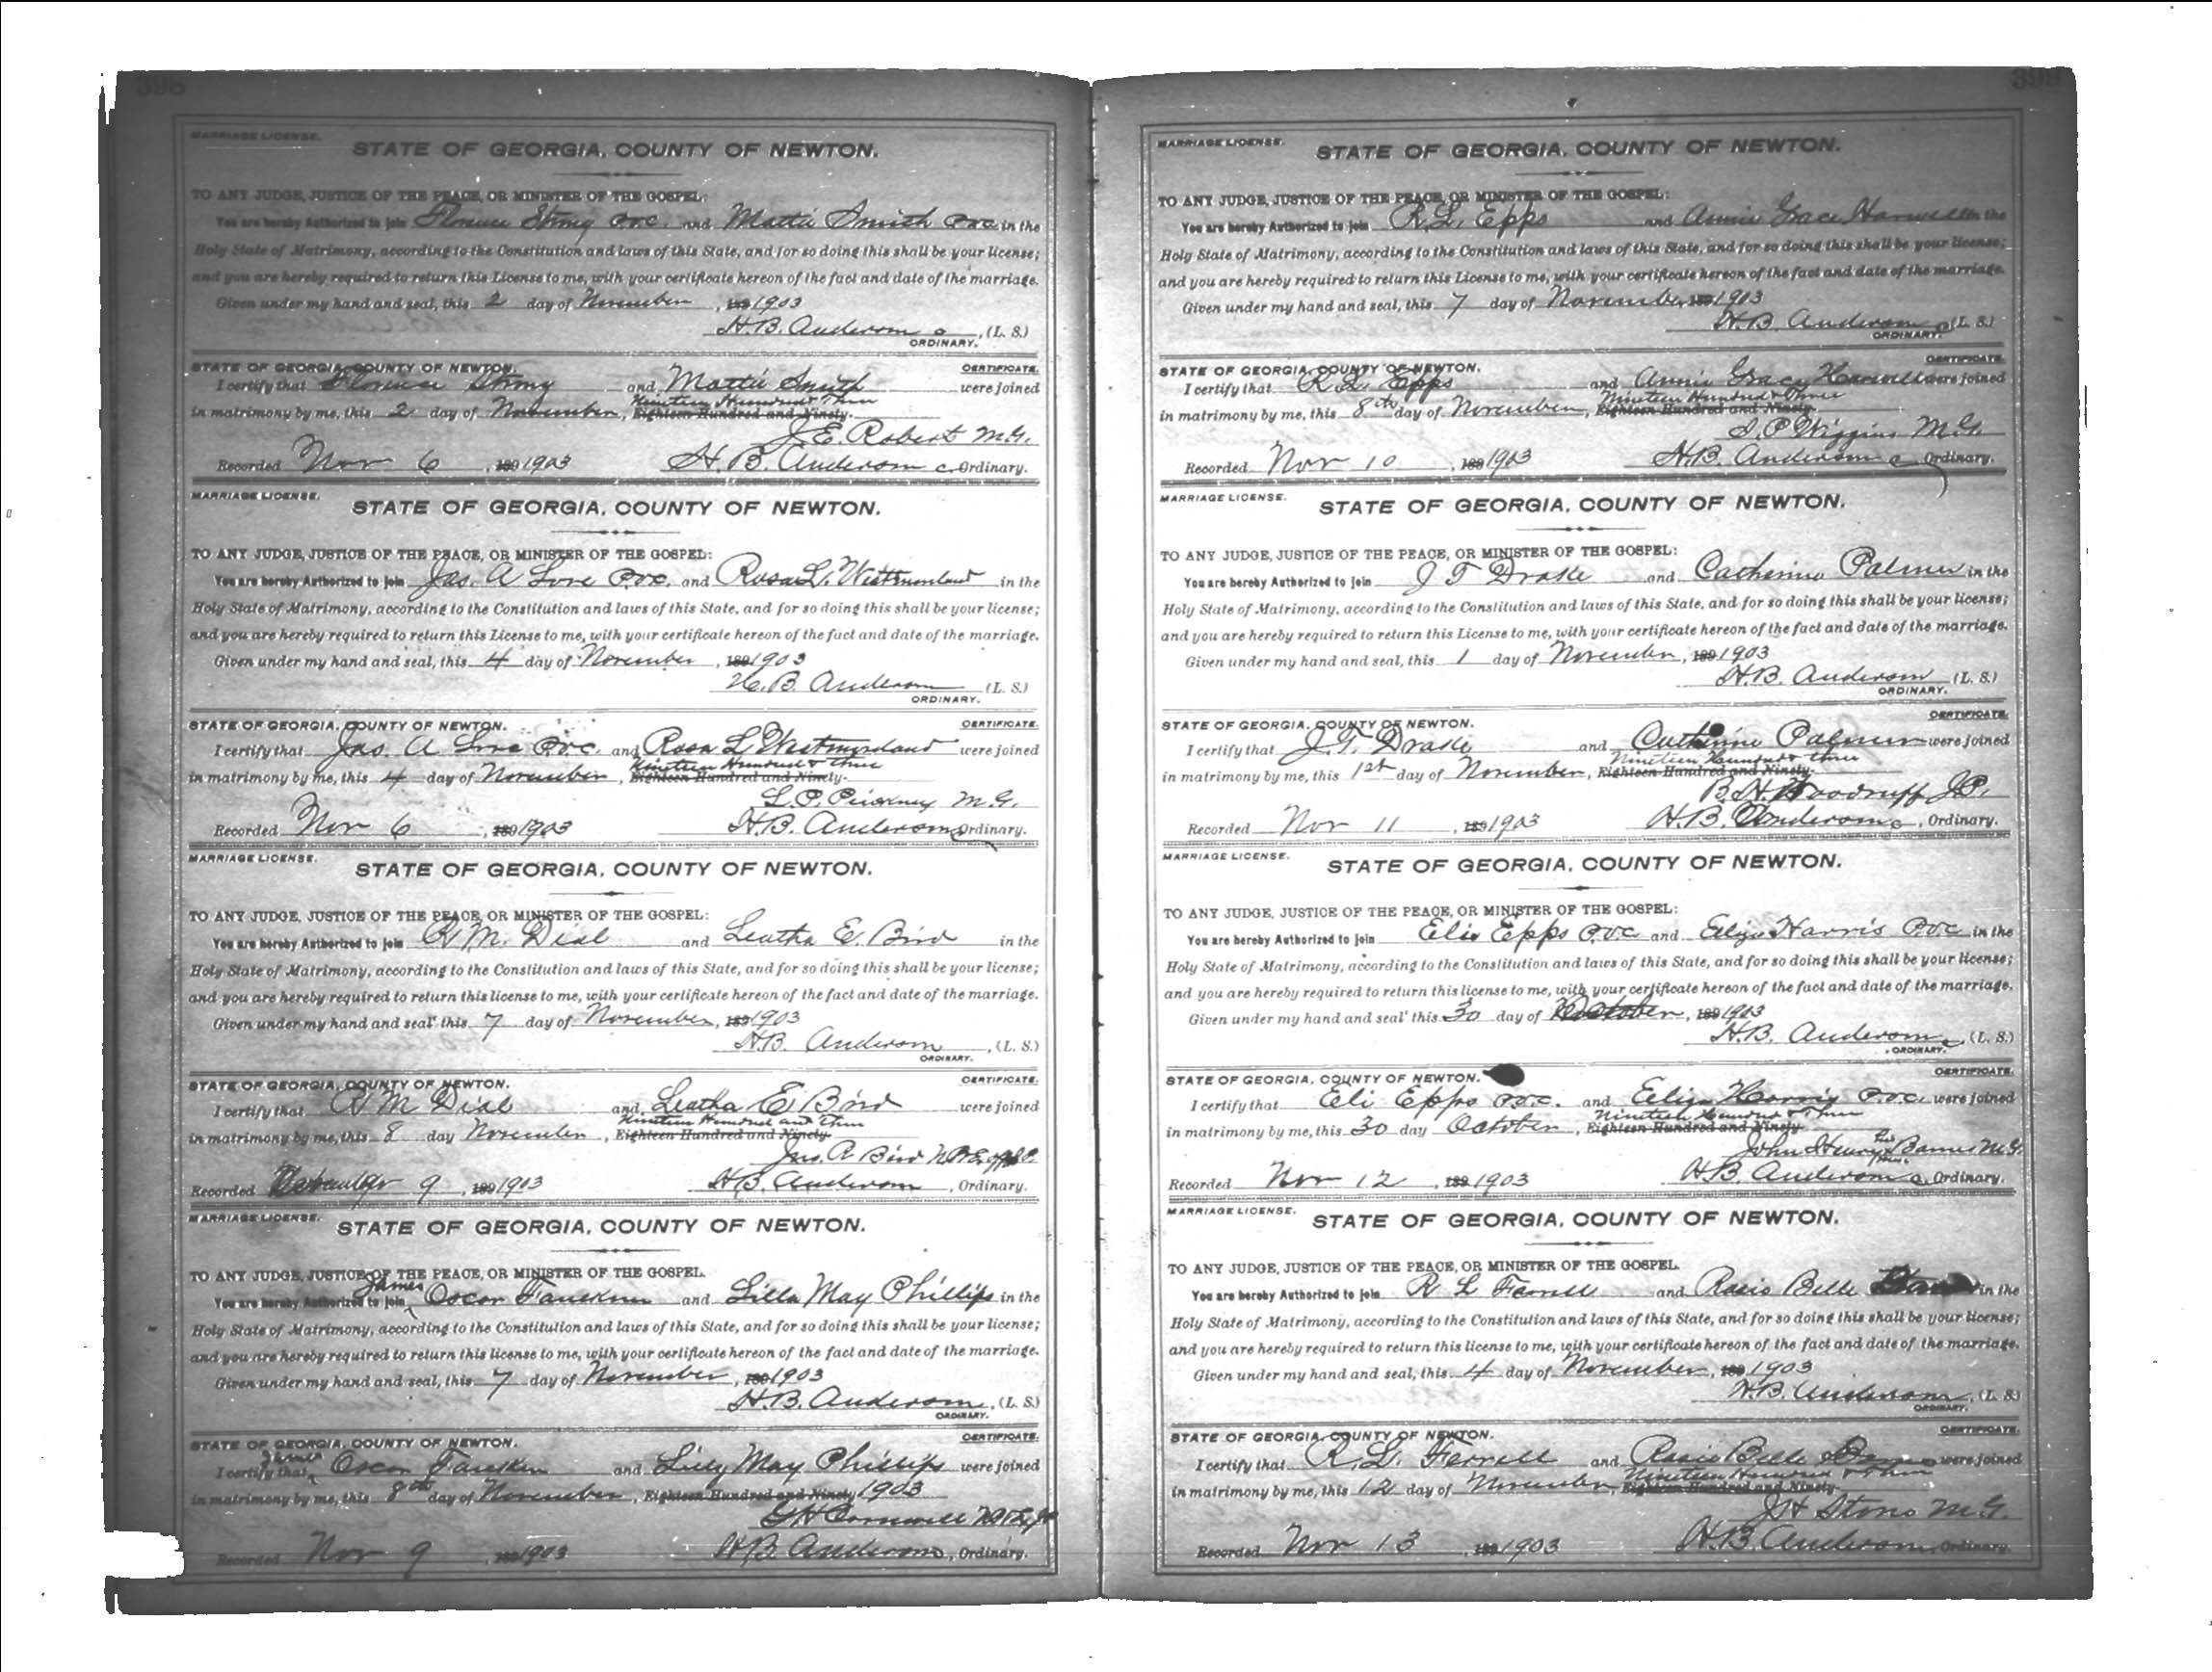 398
MARRIAGE LICENSE.
STATE OF GEORGIA, COUNTY OF NEWTON.
TO ANY JUDGE, JUSTICE OF THE PEACE, OR MINISTER OF THE GOSPEL:
You are hereby Authorized to join Florence Strong and Mattie Smith in the
Holy State of Matrimony, according to the Constitution and laws of this State, and for so doing this shall be your license;
and you are hereby required to return this License to me, with your certificate hereon of the fact and date of the marriage.
Given under my hand and seal, this 2 day of November, 189 1903
H.B. Anderson, (L. S.)
ORDINARY.
STATE OF GEORGIA, COUNTY OF NEWTON. CERTIFICATE.
I certify that Florence Strong and Mattie Smith were joined
Nineteen Hundred & Three
in matrimony by me, this 2 day of November, Eighteen Hundred and Ninety-
J.E. Robert M.G.
Recorded Nov 6, 189 1903 H.B. Anderson Ordinary.
MARRIAGE LICENSE.
STATE OF GEORGIA, COUNTY OF NEWTON.
TO ANY JUDGE, JUSTICE OF THE PEACE, OR MINISTER OF THE GOSPEL:
You are hereby Authorized to join Jas. A Love P.O.C. and Rosa L. Westmoreland in the
Holy State of Matrimony, according to the Constitution and laws of this State, and for so doing this shall be your license;
and you are hereby required to return this License to me, with your certificate hereon of the fact and date of the marriage.
Given under my hand and seal, this 4 day of November, 189 1903
H.B. Anderson (L. S.)
ORDINARY.
STATE OF GEORGIA, COUNTY OF NEWTON. CERTIFICATE.
I certify that Jas. A Love P.O.C. and Rosa L Westmoreland were joined
Nineteen Hundred & Three
in matrimony by me, this 4 day of November, Eighteen Hundred and Ninety-
L.P. Pinkney M.G.
Recorded Nov 6, 189 1903 H.B. Anderson Ordinary.
MARRIAGE LICENSE.
STATE OF GEORGIA, COUNTY OF NEWTON.
TO ANY JUDGE, JUSTICE OF THE PEACE, OR MINISTER OF THE GOSPEL:
You are hereby Authorized to join R.M. Dial and Leatha E. Bird in the
Holy State of Matrimony, according to the Constitution and laws of this State, and for so doing this shall be your license;
and you are hereby required to return this license to me, with your certificate hereon of the fact and date of the marriage.
Given under my hand and seal this 7 day of November, 189 1903
H.B. Anderson, (L. S.)
ORDINARY.
STATE OF GEORGIA, COUNTY OF NEWTON. CERTIFICATE.
I certify that R M Dial and Leatha E. Bird were joined
Nineteen Hundred and Three
in matrimony by me, this 8 day November, Eighteen Hundred and Ninety-
Jno. R Bird
Recorded 9, 189 1903 H.B. Anderson, Ordinary.
MARRIAGE LICENSE.
STATE OF GEORGIA, COUNTY OF NEWTON.
TO ANY JUDGE, JUSTICE OF THE PEACE, OR MINISTER OF THE GOSPEL.
James
You are hereby Authorized to join Oscar Faulkner and Lilla May Phillips in the
Holy State of Matrimony, according to the Constitution and laws of this State, and for so doing this shall be your license;
and you are hereby required to return this license to me, with your certificate hereon of the fact and date of the marriage.
Given under my hand and seal, this 7 day of November, 189 1903
H.B. Anderson, (L. S.)
ORDINARY.
STATE OF GEORGIA, COUNTY OF NEWTON. CERTIFICATE.
James
I certify that Oscar and Lilly May Phillips were joined
in matrimony by me, this 8th day of November, Eighteen Hundred and Ninety 1903
G H Cornwell
Recorded Nov 9, 189 1903 H.B Anderson, Ordinary.
399
MARRIAGE LICENSE.
STATE OF GEORGIA, COUNTY OF NEWTON.
TO ANY JUDGE, JUSTICE OF THE PEACE, OR MINISTER OF THE GOSPEL:
You are hereby Authorized to join R.L. Epps and Annie Grace Harwell in the
Holy State of Matrimony, according to the Constitution and laws of this State, and for so doing this shall be your license;
and you are hereby required to return this License to me, with your certificate hereon of the fact and date of the marriage.
Given under my hand and seal, this 7 day of November, 189 1903
H.B. Anderson (L. S.)
ORDINARY.
STATE OF GEORGIA, COUNTY OF NEWTON. CERTIFICATE.
I certify that R.L. Epps and Annie Gracy Harwell were joined
Nineteen Hundred & Three
in matrimony by me, this 8th day of November, Eighteen Hundred and Ninety-
Wiggins M.G.
Recorded Nov 10, 189 1903 H.B. Anderson Ordinary.
MARRIAGE LICENSE.
STATE OF GEORGIA, COUNTY OF NEWTON.
TO ANY JUDGE, JUSTICE OF THE PEACE, OR MINISTER OF THE GOSPEL:
You are hereby Authorized to join J T Drake and Catherine Palmer in the
Holy State of Matrimony, according to the Constitution and laws of this State, and for so doing this shall be your license;
and you are hereby required to return this License to me, with your certificate hereon of the fact and date of the marriage.
Given under my hand and seal, this 1 day of November, 189 1903
H.B. Anderson (L. S.)
ORDINARY.
STATE OF GEORGIA, COUNTY OF NEWTON. CERTIFICATE.
I certify that J.T. Drake and Catherine Palmer were joined
Nineteen Hundred & Three
in matrimony by me, this 1st day of November, Eighteen Hundred and Ninety-
B.H. Woodruff J.P.
Recorded Nov 11, 189 1903 H.B. Anderson, Ordinary.
MARRIAGE LICENSE.
STATE OF GEORGIA, COUNTY OF NEWTON.
TO ANY JUDGE, JUSTICE OF THE PEACE, OR MINISTER OF THE GOSPEL:
You are hereby Authorized to join Eli Epps P.O.C. and Eliza Harris P.O.C. in the
Holy State of Matrimony, according to the Constitution and laws of this State, and for so doing this shall be your license;
and you are hereby required to return this license to me, with your certificate hereon of the fact and date of the marriage.
Given under my hand and seal this 30 day of October, 189 1903
H.B. Anderson, (L. S.)
ORDINARY.
STATE OF GEORGIA, COUNTY OF NEWTON. CERTIFICATE.
I certify that Eli Epps P.O.C. and Eliza Harris P.O.C. were joined
Nineteen Hundred & Three
in matrimony by me, this 30 day October, Eighteen Hundred and Ninety-
John Henry Barnes M.G.
Recorded Nov 12, 189 1903 H.B. Anderson Ordinary.
MARRIAGE LICENSE.
STATE OF GEORGIA, COUNTY OF NEWTON.
TO ANY JUDGE, JUSTICE OF THE PEACE, OR MINISTER OF THE GOSPEL.
You are hereby Authorized to join R L Ferrell and Rosie Belle in the
Holy State of Matrimony, according to the Constitution and laws of this State, and for so doing this shall be your license;
and you are hereby required to return this license to me, with your certificate hereon of the fact and date of the marriage.
Given under my hand and seal, this 4 day of November, 189 1903
H.B. Anderson, (L. S.)
ORDINARY.
STATE OF GEORGIA, COUNTY OF NEWTON. CERTIFICATE.
I certify that R.L. Ferrell and Rosie Belle were joined
Nineteen Hundred & Three
in matrimony by me, this 12 day of November, Eighteen Hundred and Ninety-
J H Stone M.G.
Recorded Nov 13, 189 1903 H.B. Anderson, Ordinary.